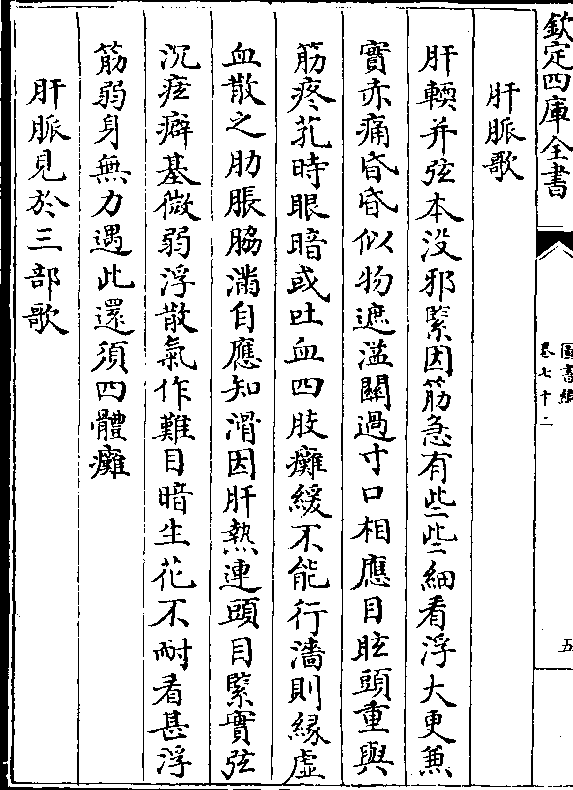 欽定四庫全書
圖書編
卷七十二
五
肝脈歌
肝輭并弦本没邪緊因筋急有些些細看浮大更兼
實赤痛昏昏似物遮溢關過寸口相應目眩頭重與
筋疼芤時眼暗或吐血四肢癱緩不能行濇則緣虛
血散之肋脹脇滿自應知滑因肝熱連頭目緊實弦
沉痃癖基微弱浮散氣作難目暗生花不耐看甚浮
筋弱身無力遇此還須四體癱
肝脈見於三部歌